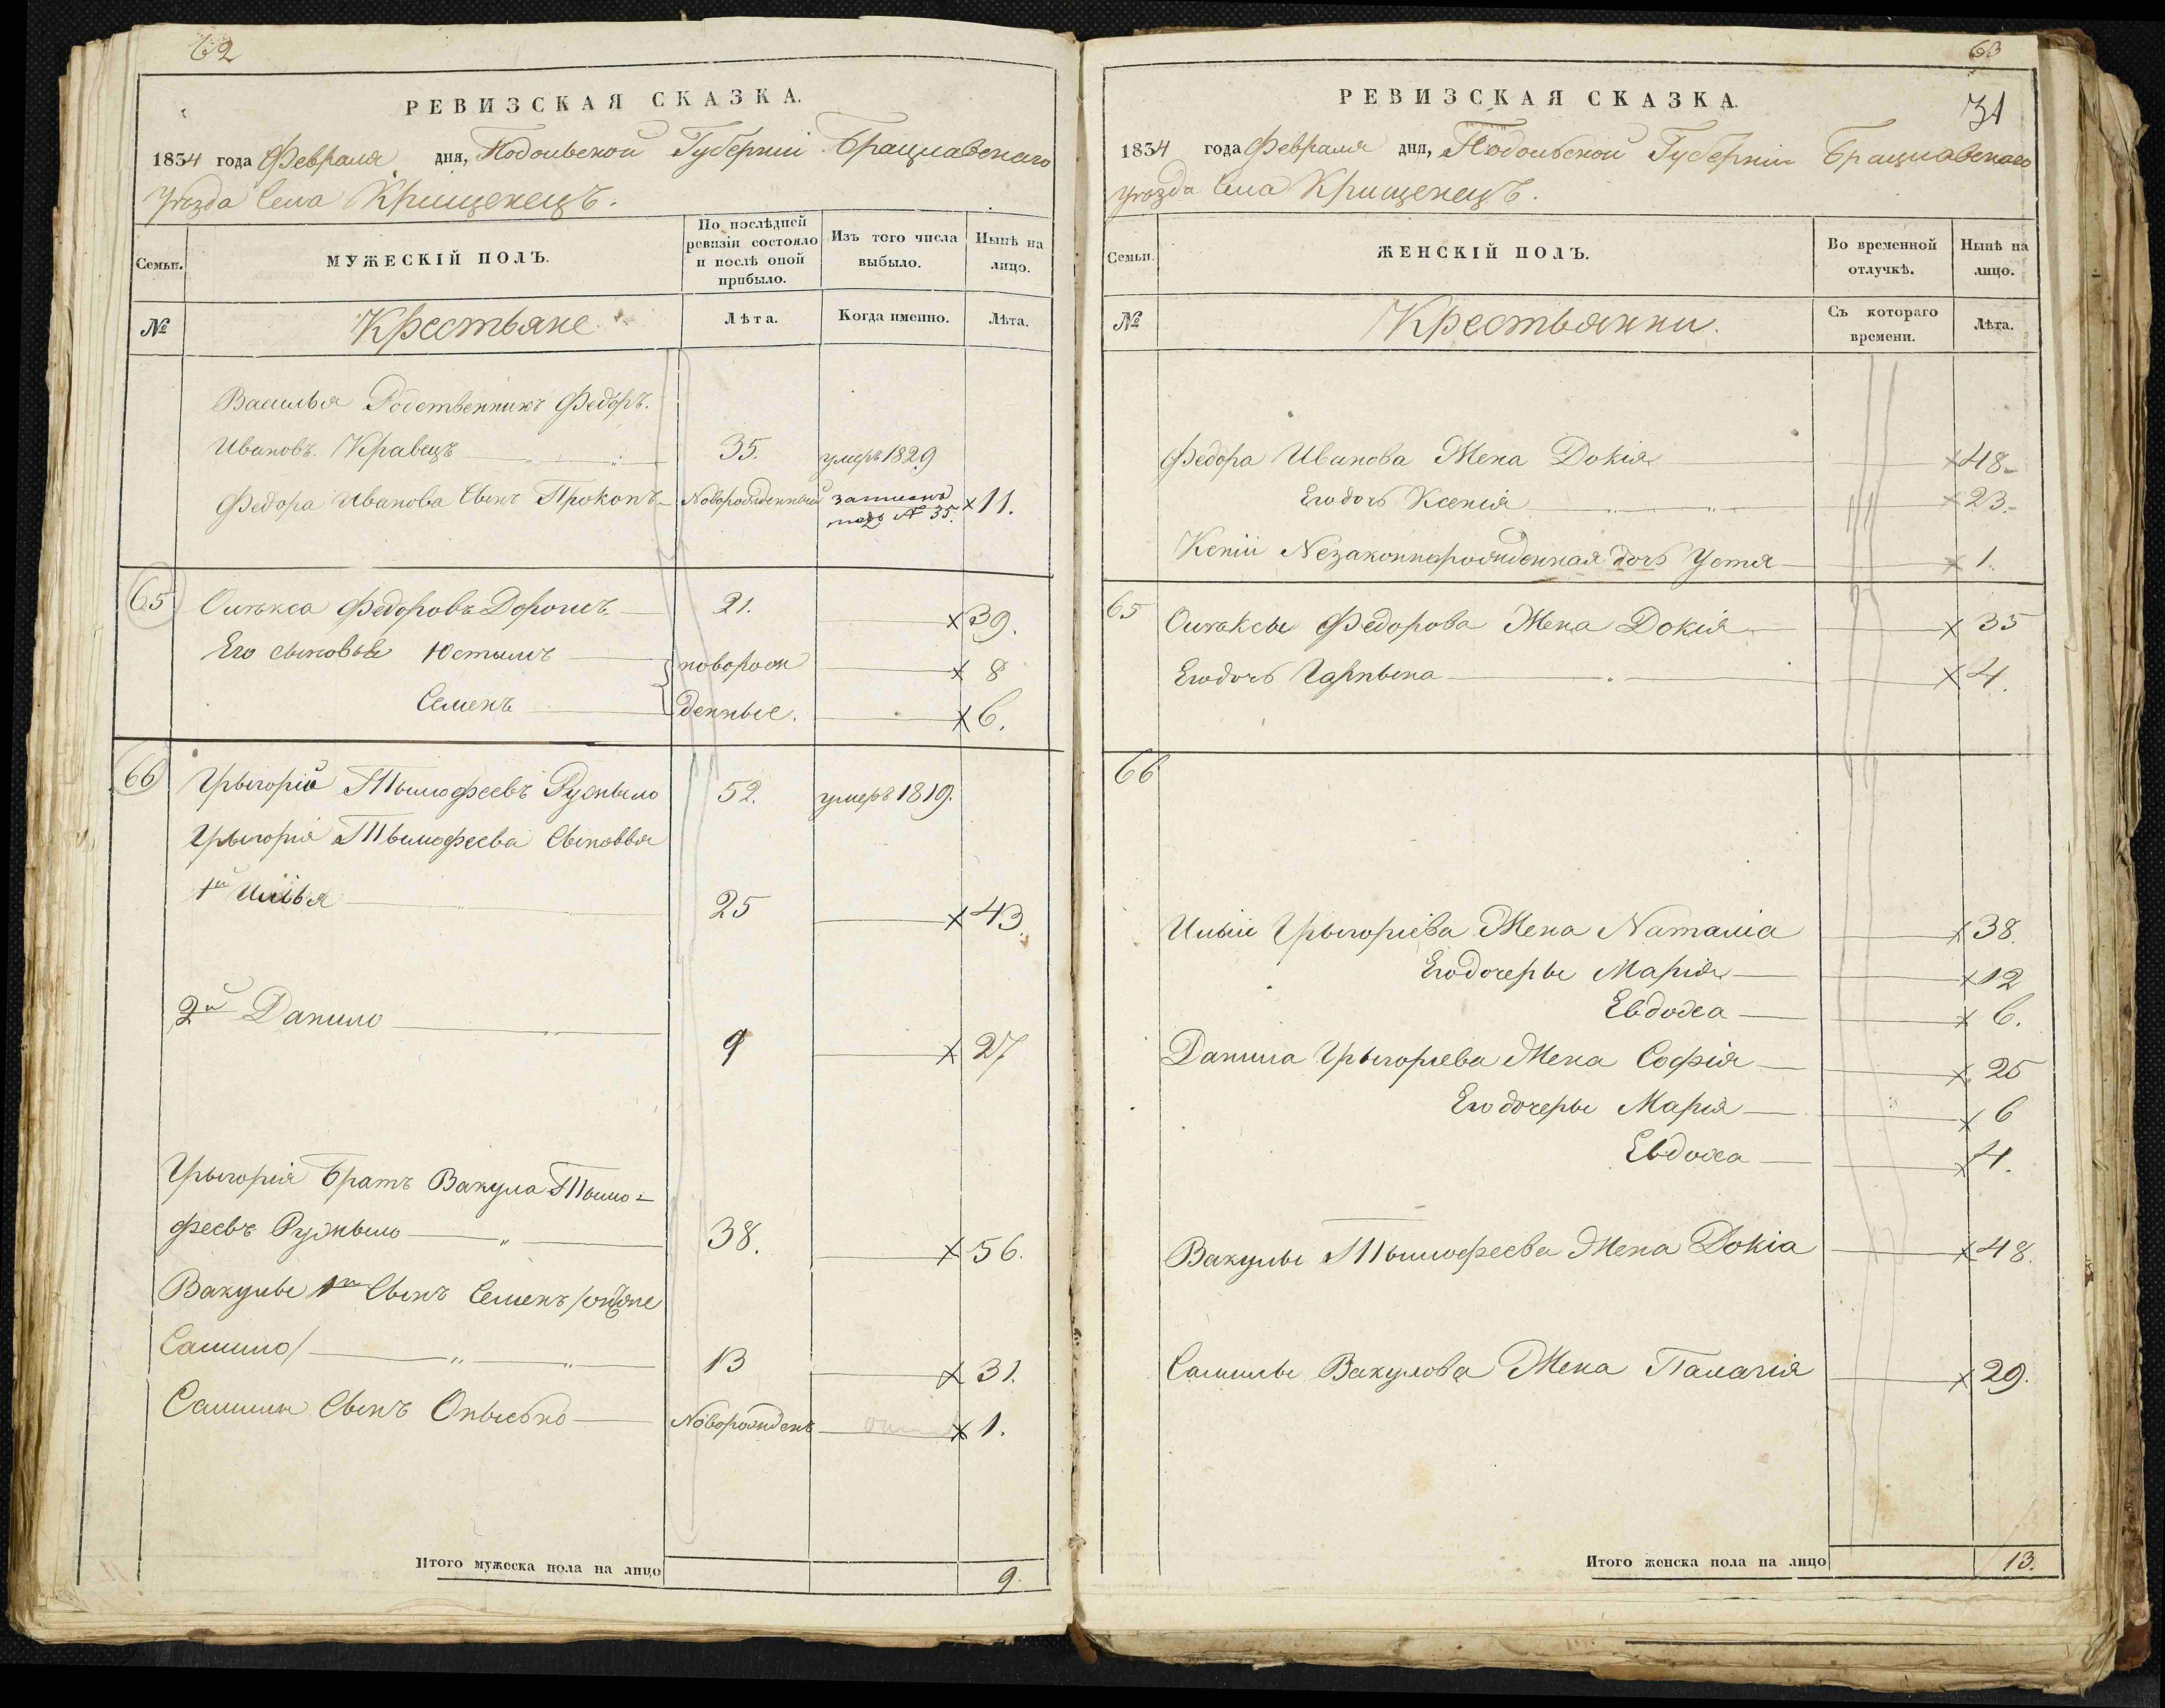 62
РЕВИЗСКАЯ СКАЗКА.
1834 года Февраля дня, Подольской Губерніи Брацлавскаго
уѣзда Села Крищенецъ.
Семьи.
МУЖЕСКІЙ ПОЛЪ.
По послѣдней ревизіи состояло и послѣ оной прибыло.
Изъ того числа выбыло.
Нынѣ на лицо.
№
Крестьяне
Лѣта.
Когда именно.
Лѣта.
Василья Родственникъ Федоръ
Ивановъ Кравецъ 35. умеръ 1829
Федора Иванова Сынъ Прокопъ Новорожденный записанъ подъ № 35. x 11.
65 Олѣкса Федоровъ Дорошъ 21. x 39.
Его сыновья Юстымъ новорож x 8
Семенъ денные. x 6.
66 Грыгорій Тымофеевъ 52. умеръ 1819.
Грыгорія Тымофеева Сыновья
1й Илья 25 x 43.
2й Данило 9 x 27
Грыгорія Братъ Вакула Тымо=
феевъ 38. x 56.
Вакулы 1й Сынъ Семенъ /онже
Самило/ 13 x 31.
Самилы Сынъ Новорожденъ x 1.
Итого мужеска пола на лицо 9.
63
31
РЕВИЗСКАЯ СКАЗКА.
1834 года Февраля дня, Подольской Губерніи Брацлавскаго
уѣзда Села Крищенецъ.
Семьи.
ЖЕНСКІЙ ПОЛЪ.
Во временной отлучкѣ.
Нынѣ на лицо.
№
Крестьянки.
Съ котораго времени.
Лѣта.
Федора Иванова Жена Докія x 48
Егодочь Ксенія x 23.
Ксніи Незаконнорожденная дочь Устя x 1.
65 Олѣксы Федорова Жена Докія x 35
Егодочь Гарпына x 4.
66
Ильи Грыгоріева Жена Наталіа x 38.
Егодочеры Марія x 12
Евдоха x 6.
Данила Грыгорьева Жена Софія x 25
Его дочеры Марія x 6
Евдоха x 4.
Вакулы Тымофеева Жена Докіа x 48.
Самилы Вакулова Жена Палагія x 29.
Итого женска пола на лицо 13.